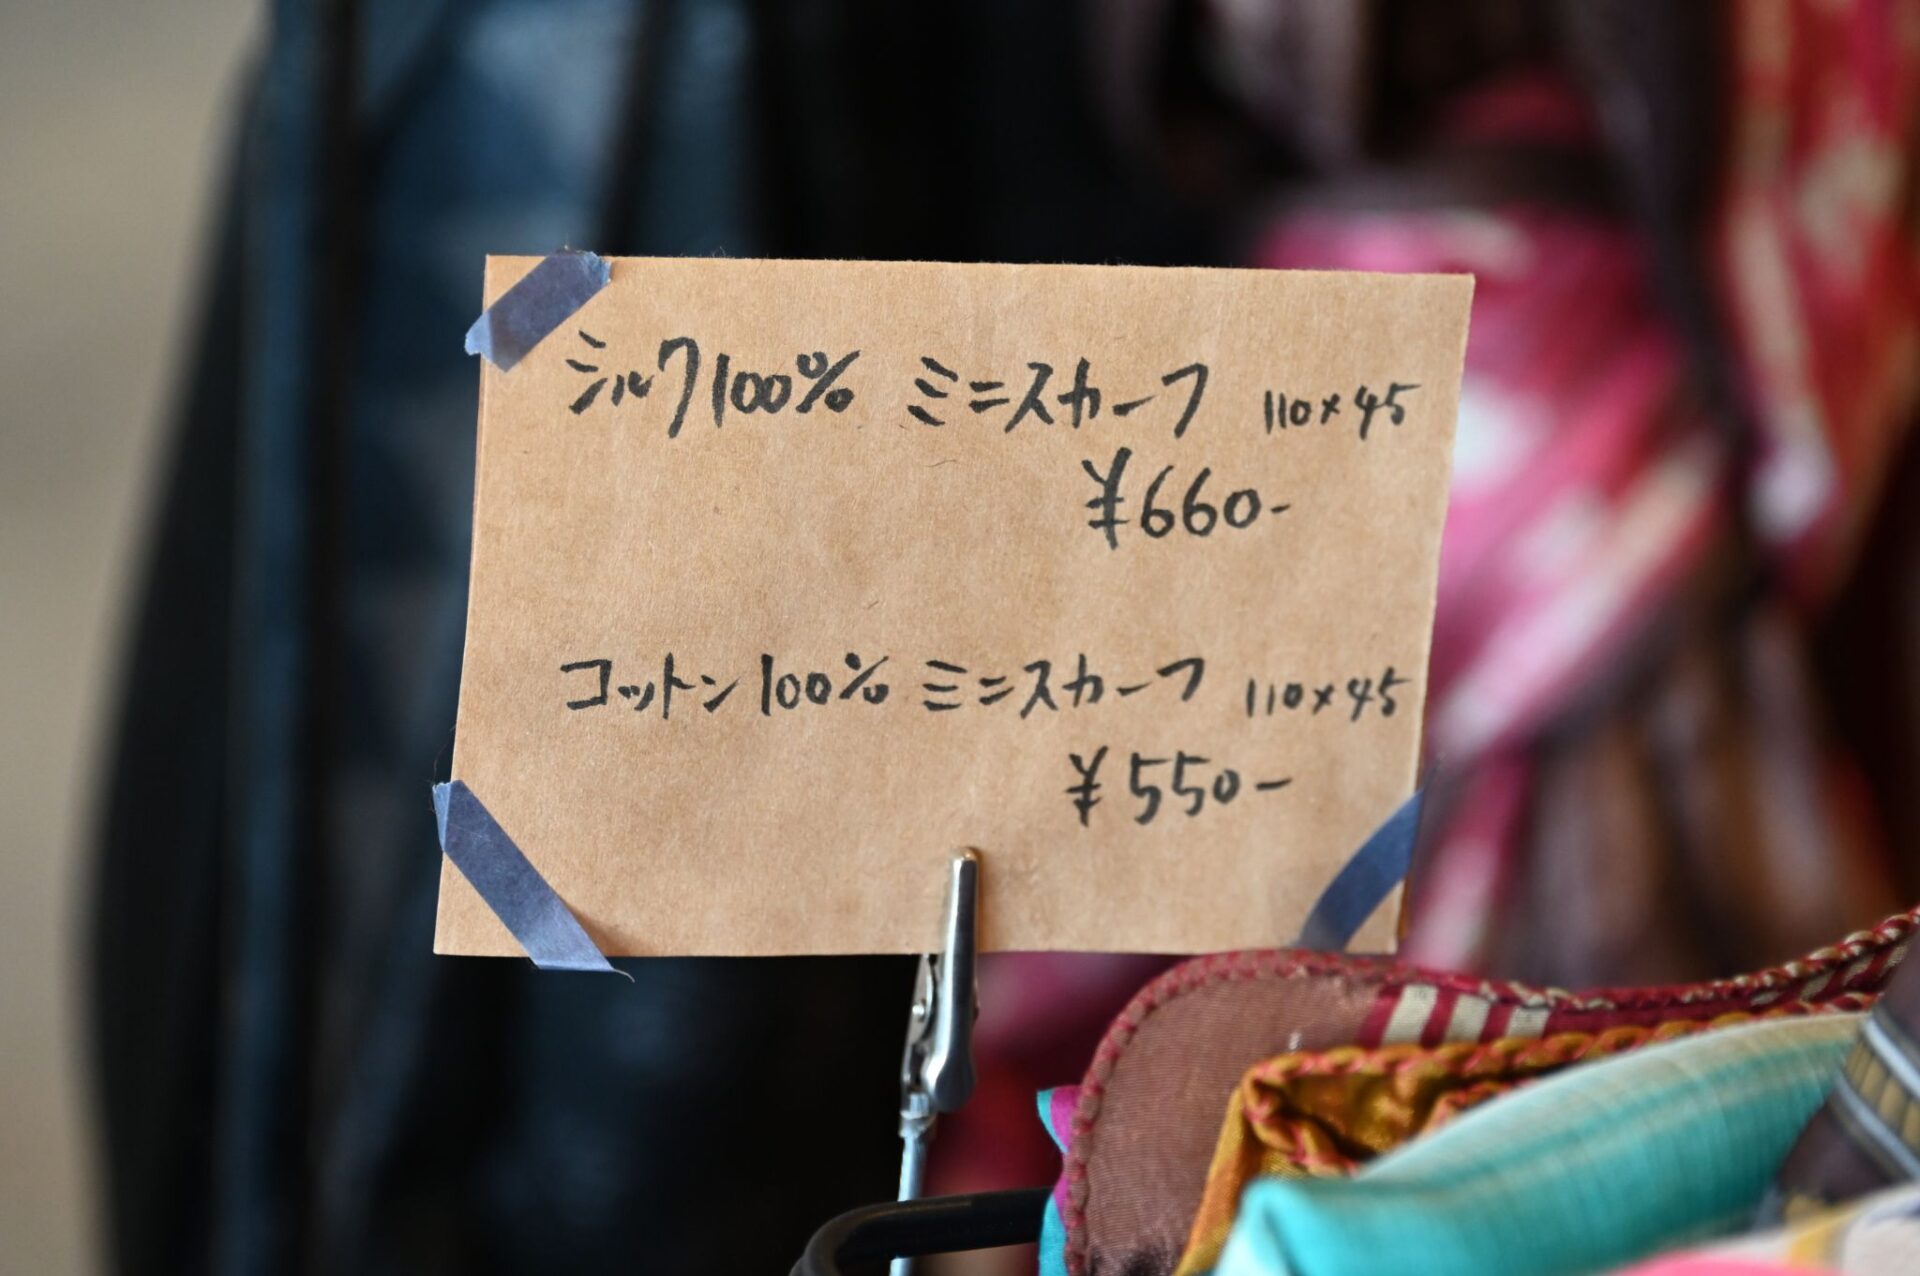 シルク100% ミニスカーフ 110×45
¥660-
コットン100% ミニスカーフ 110×45
¥550-